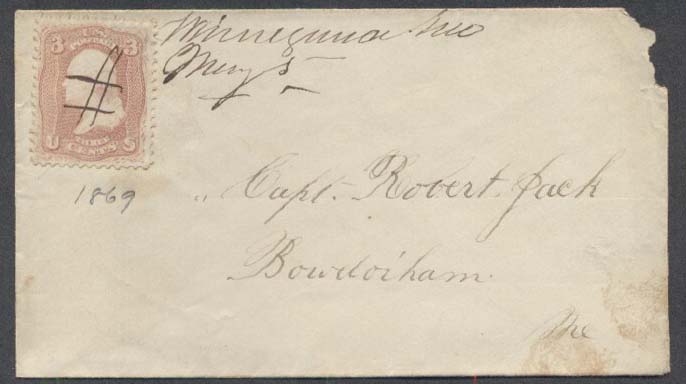 Winnegance Me
May 5
3 3
U S
CENTS
1869
" Capt. Robert Jack
Bowdoinham
Me